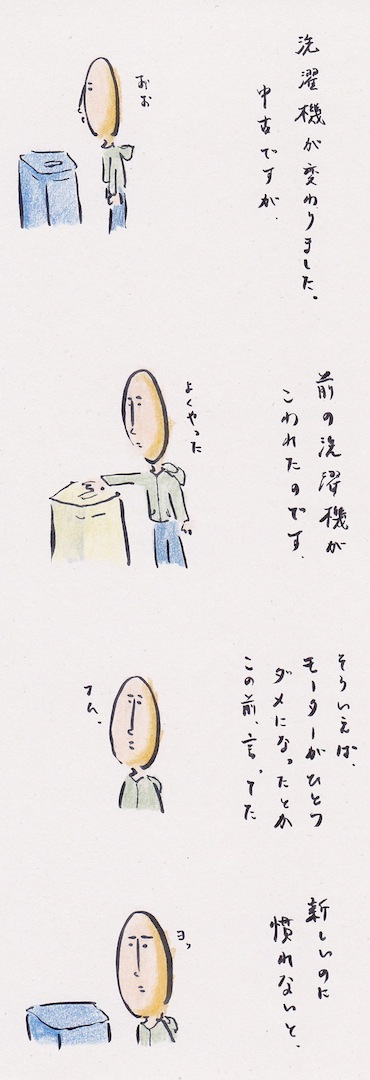 洗濯機が変わりました。
中古ですが、
おお
前の洗濯機が
こわれたのです。
よくやった
そういえば、
モーターがひとつ
ダメになったとか
この前、言ってた
フム、
新しいのに
慣れないと、
ヨッ